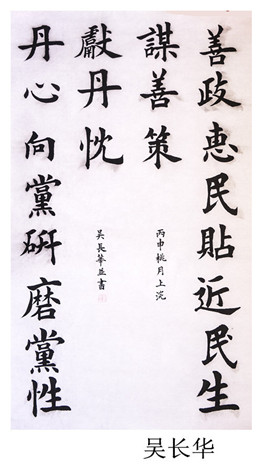 善政惠民貼近民生
謀善策
丙申桃月上浣
丹心向黨研磨黨性
獻丹忱
吴長華並書
吴长华